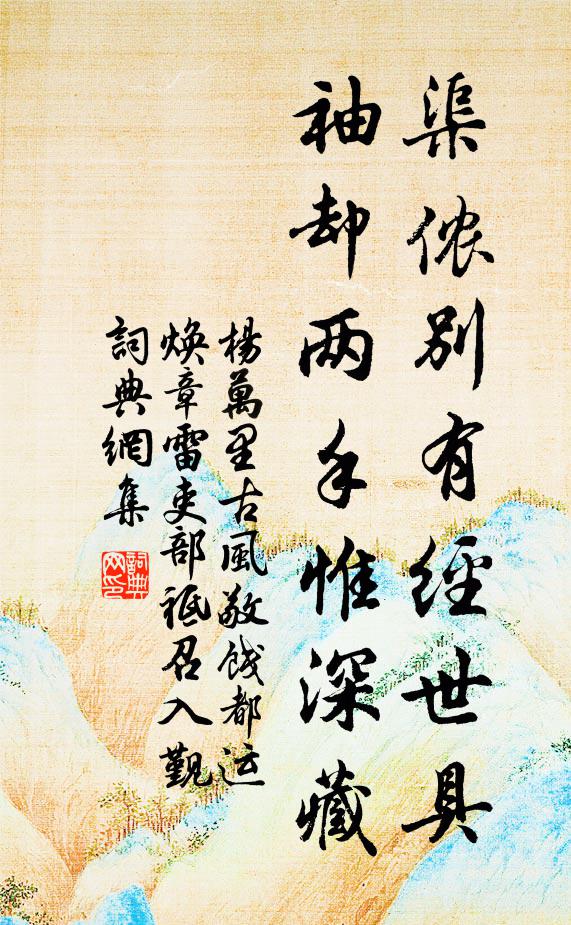 渠侬别有經世具
袖却两手惟深藏
楊萬里古風敬餞都运
焕章雷吏部祗召入觐
詞典網集
詞典网印